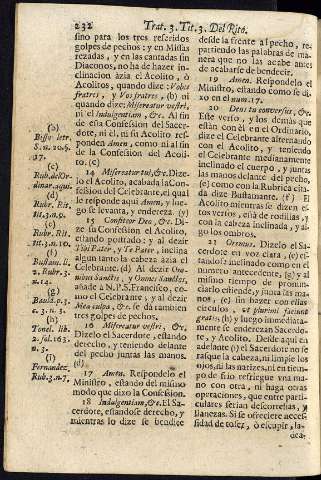 232 Trat. 3. Tit. 3. Del Rito.
sino para los tres referidos
golpes de pechos: y en Missas
rezadas, y en las cantadas sin
Diaconos, no ha de hazer in-
clinacion àzia el Acolito, ò
Acolitos, quando dize: Vobis
fratres, y Vos fratres, (b) ni
quando dize: Misereatur vestri,
ni el Indulgentiam, &c. Al fin
de esta Confession del Sacer-
dote, ni èl, ni su Acolito res-
ponden Amen, como ni al fin
de la Confession del Acoli-
to. (c)
14 Misereatur tui, &c. Dize-
lo el Acolito, acabada la Con-
fession del Celebrante, el qual
le responde aqui Amen, y lue-
go se levanta, y endereza. (y)
15 Confiteor Deo, &c. Di-
ze su Confession el Acolito,
estando postrado; y al dezir
Tibi Pater, y Te Pater, inclina
algun tanto la cabeza àzia el
Celebrante. (d) Al dezir
añade à N. P. S. Francisco, co-
mo el Celebrante; y al dezir
Mea culpa, &c. se dà tambien
tres golpes de pechos.
16 Misereatur vestri, &c.
Dizelo el Sacerdote, estando
derecho, y teniendo delante
del pecho juntas las manos.
(d)
17 Amen. Respondelo el
Ministro, estando del mismo
modo que dixo la Confession.
18 Indulgentiam, &c. El Sa-
cerdote, estandose derecho, y
mientras lo dize se bendice
(b)
Biss. letr.
S. n. 209. §.
(c)
Rub. del Or-
dinar. aqui.
(d)
Rubr. Rit.
tit. 3. n. 9.
(e)
Rubr. Rit.
tit. 3. n. 10.
(f)
Bustam. li.
2. Rubr. 3.
n. 14.
(g)
Bauld. p. 3.
c. 3. n. 3.
(h)
Tonel. lib.
2. fol. 163.
n. 3.
(i)
Fernandez,
Rub. 3. n. 7.
desde la frente al pecho, re-
partiendo las palabras de ma-
nera que no las acabe antes
de acabarse de bendecir.
19 Amen. Respondelo el
Ministro, estando como se di-
xo en el num. 17.
20 Deus tu conversus, &c.
Este verso, y los demàs que
estàn en el Ordinario,
dize el Celebrante alternando
con el Acolito, y teniendo
el Celebrante medianamente
inclinado el cuerpo, y juntas
las manos delante del pecho,
(e) como con la Rubrica cita-
da dize Bustamante. (f) El
Acolito mientras se dizen es-
tos versos, està de rodillas, y
con la cabeza inclinada, y al-
go los ombros.
21 Oremus. Dizelo el Sa-
cerdote en voz clara, (e) es-
tando inclinado como en el
numero antecedente, (g) y al
mismo tiempo de pronun-
ciarlo estiende, y junta las ma-
nos, (e) sin hazer con ellas
circulos,
(h) y luego immediata-
mente se enderezan Sacerdo-
te, y Acolito. Desde aqui en
adelante (i) el Sacerdote no se
rasque la cabeza, ni limpie los
ojos, ni las narizes, ni en tiem-
po de frio restriegue vna ma-
no con otra, ni haga otras
operaciones, que entre parti-
culares serian descorteses, y
llanezas. Si se ofreciere neces-
sidad de toser, ò escupir, la-
dea-